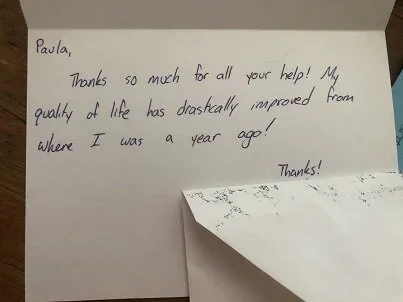 Paula,
Thanks so much for all your help! My
quality of life has drastically improved from
where I was a year ago!
Thanks!